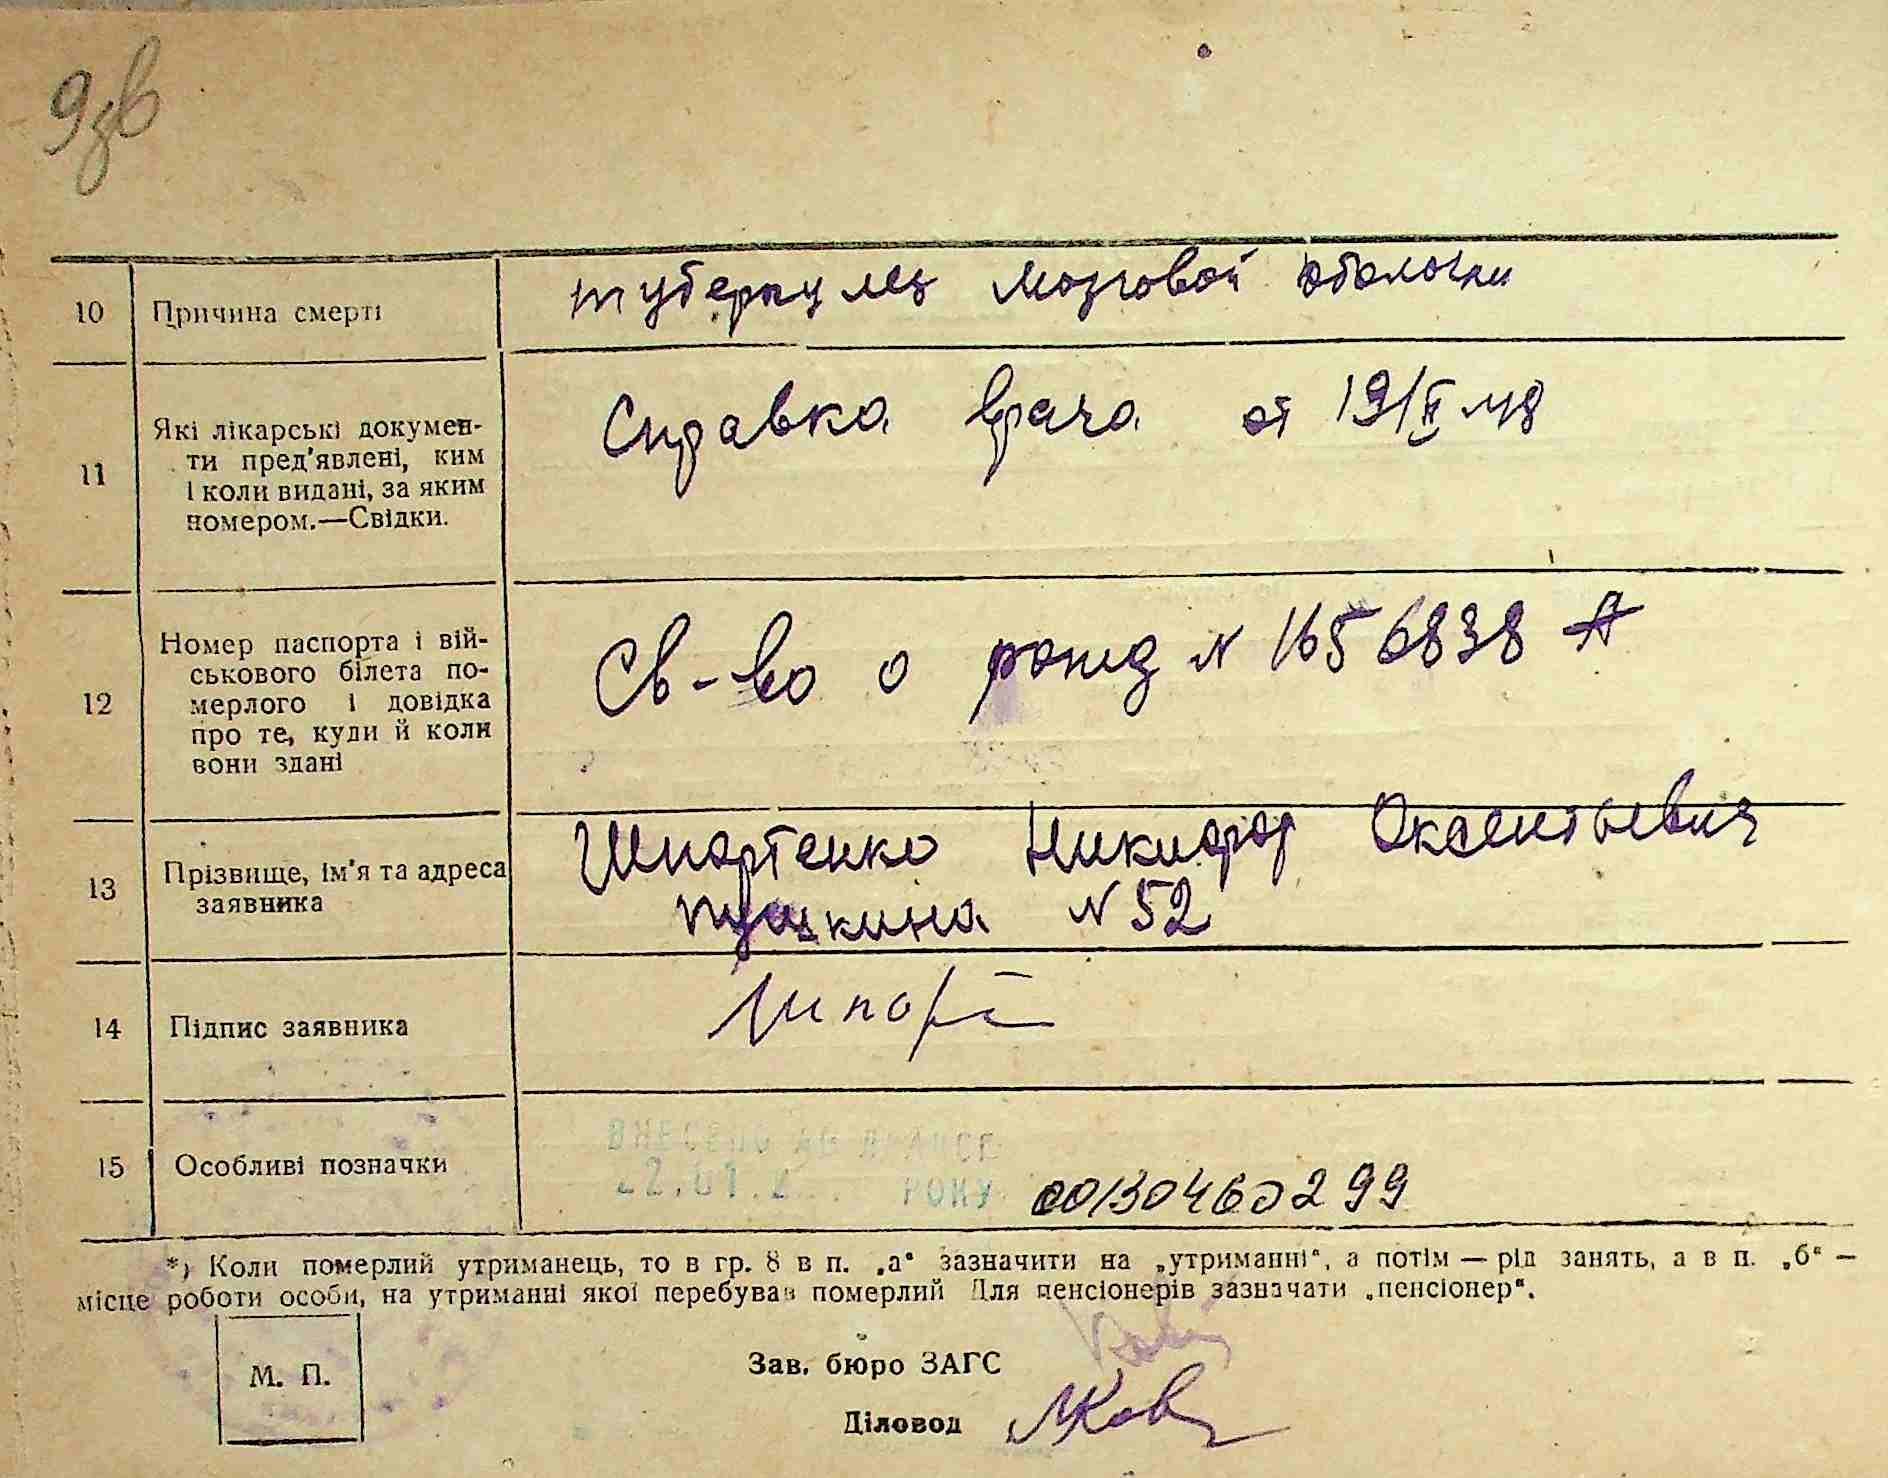 9зв
10 Причина смерті туберкулез мозговой оболочки
11 Які лікарські докумен-
ти пред'явлені, ким
і коли видані, за яким
номером.—Свідки.
Справка врача от 19/II 48
12 Номер паспорта і вій-
ськового білета по-
мерлого і довідка
про те, куди й коли
вони здані
Св-во о рожд N 1656838 А
13 Прізвище, ім'я та адреса
заявника
Шпортенко Никифор Оксентьевич
Пушкина N 52
14 Підпис заявника Шпорт
15 Особливі позначки
ВНЕСЕНО
22.01.2 РОКУ
00130460299
*) Коли померлий утриманець, то в гр. 8 в п. „а“ зазначити на „утриманні“, а потім — рід занять, а в п. „б“ —
місце роботи особи, на утриманні якої перебував померлий Для пенсіонерів зазначати „пенсіонер“.
М. П.
Зав. бюро ЗАГС
Діловод